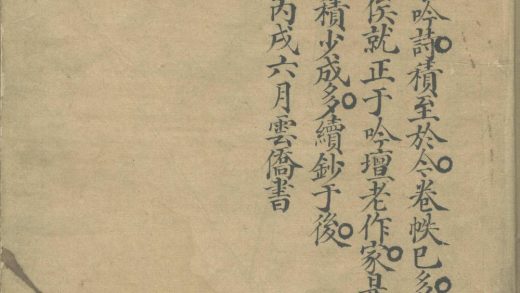 吟詩。積至於今。卷帙已多。
侯就正于吟壇老作家。是
積少成多。續鈔于後。
丙戌六月雲僑書